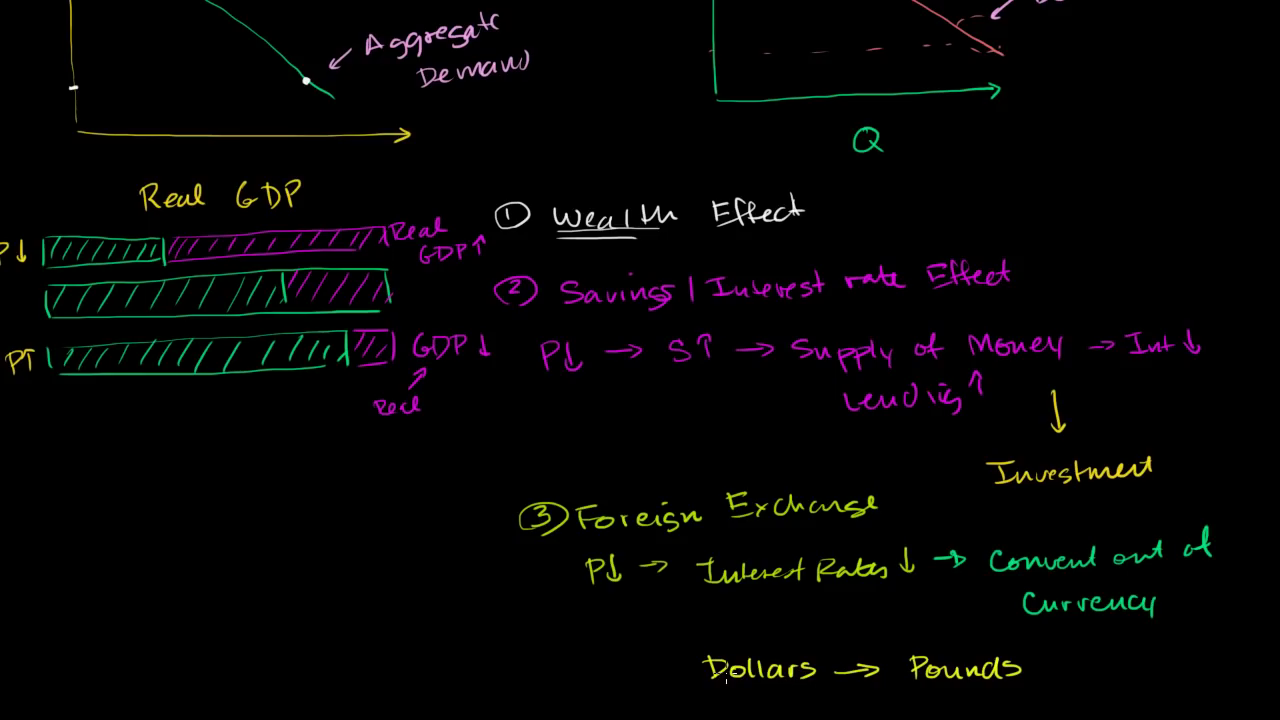 Aggregate
Demand
Q
Real GDP
P↓
Real
GDP↑
P↑
GDP↓
Real
① Wealth Effect
② Savings / Interest rate Effect
P↓ → S↑ → Supply of Money → Int↓
Lending↑
Investment
③ Foreign Exchange
P↓ → Interest Rates↓ → Convert out of
Currency
Dollars → Pounds